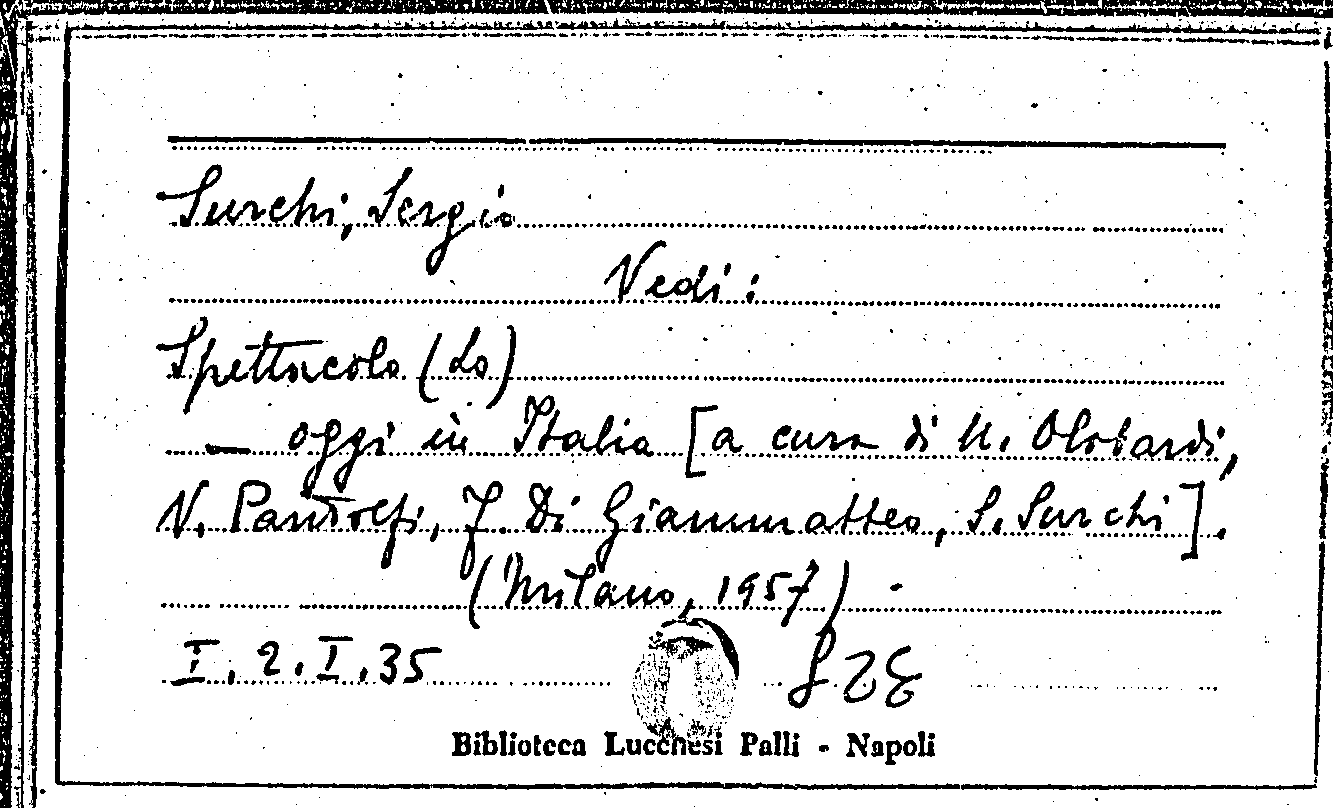 Surchi, Sergio
Vedi:
Spettacolo (Lo)
— oggi in Italia [a cura di N. Olobardi,
V. Pandolfi, F. Di Giammatteo, S. Surchi].
(Milano, 1957).
I. 2. I. 35
Biblioteca Lucchesi Palli - Napoli